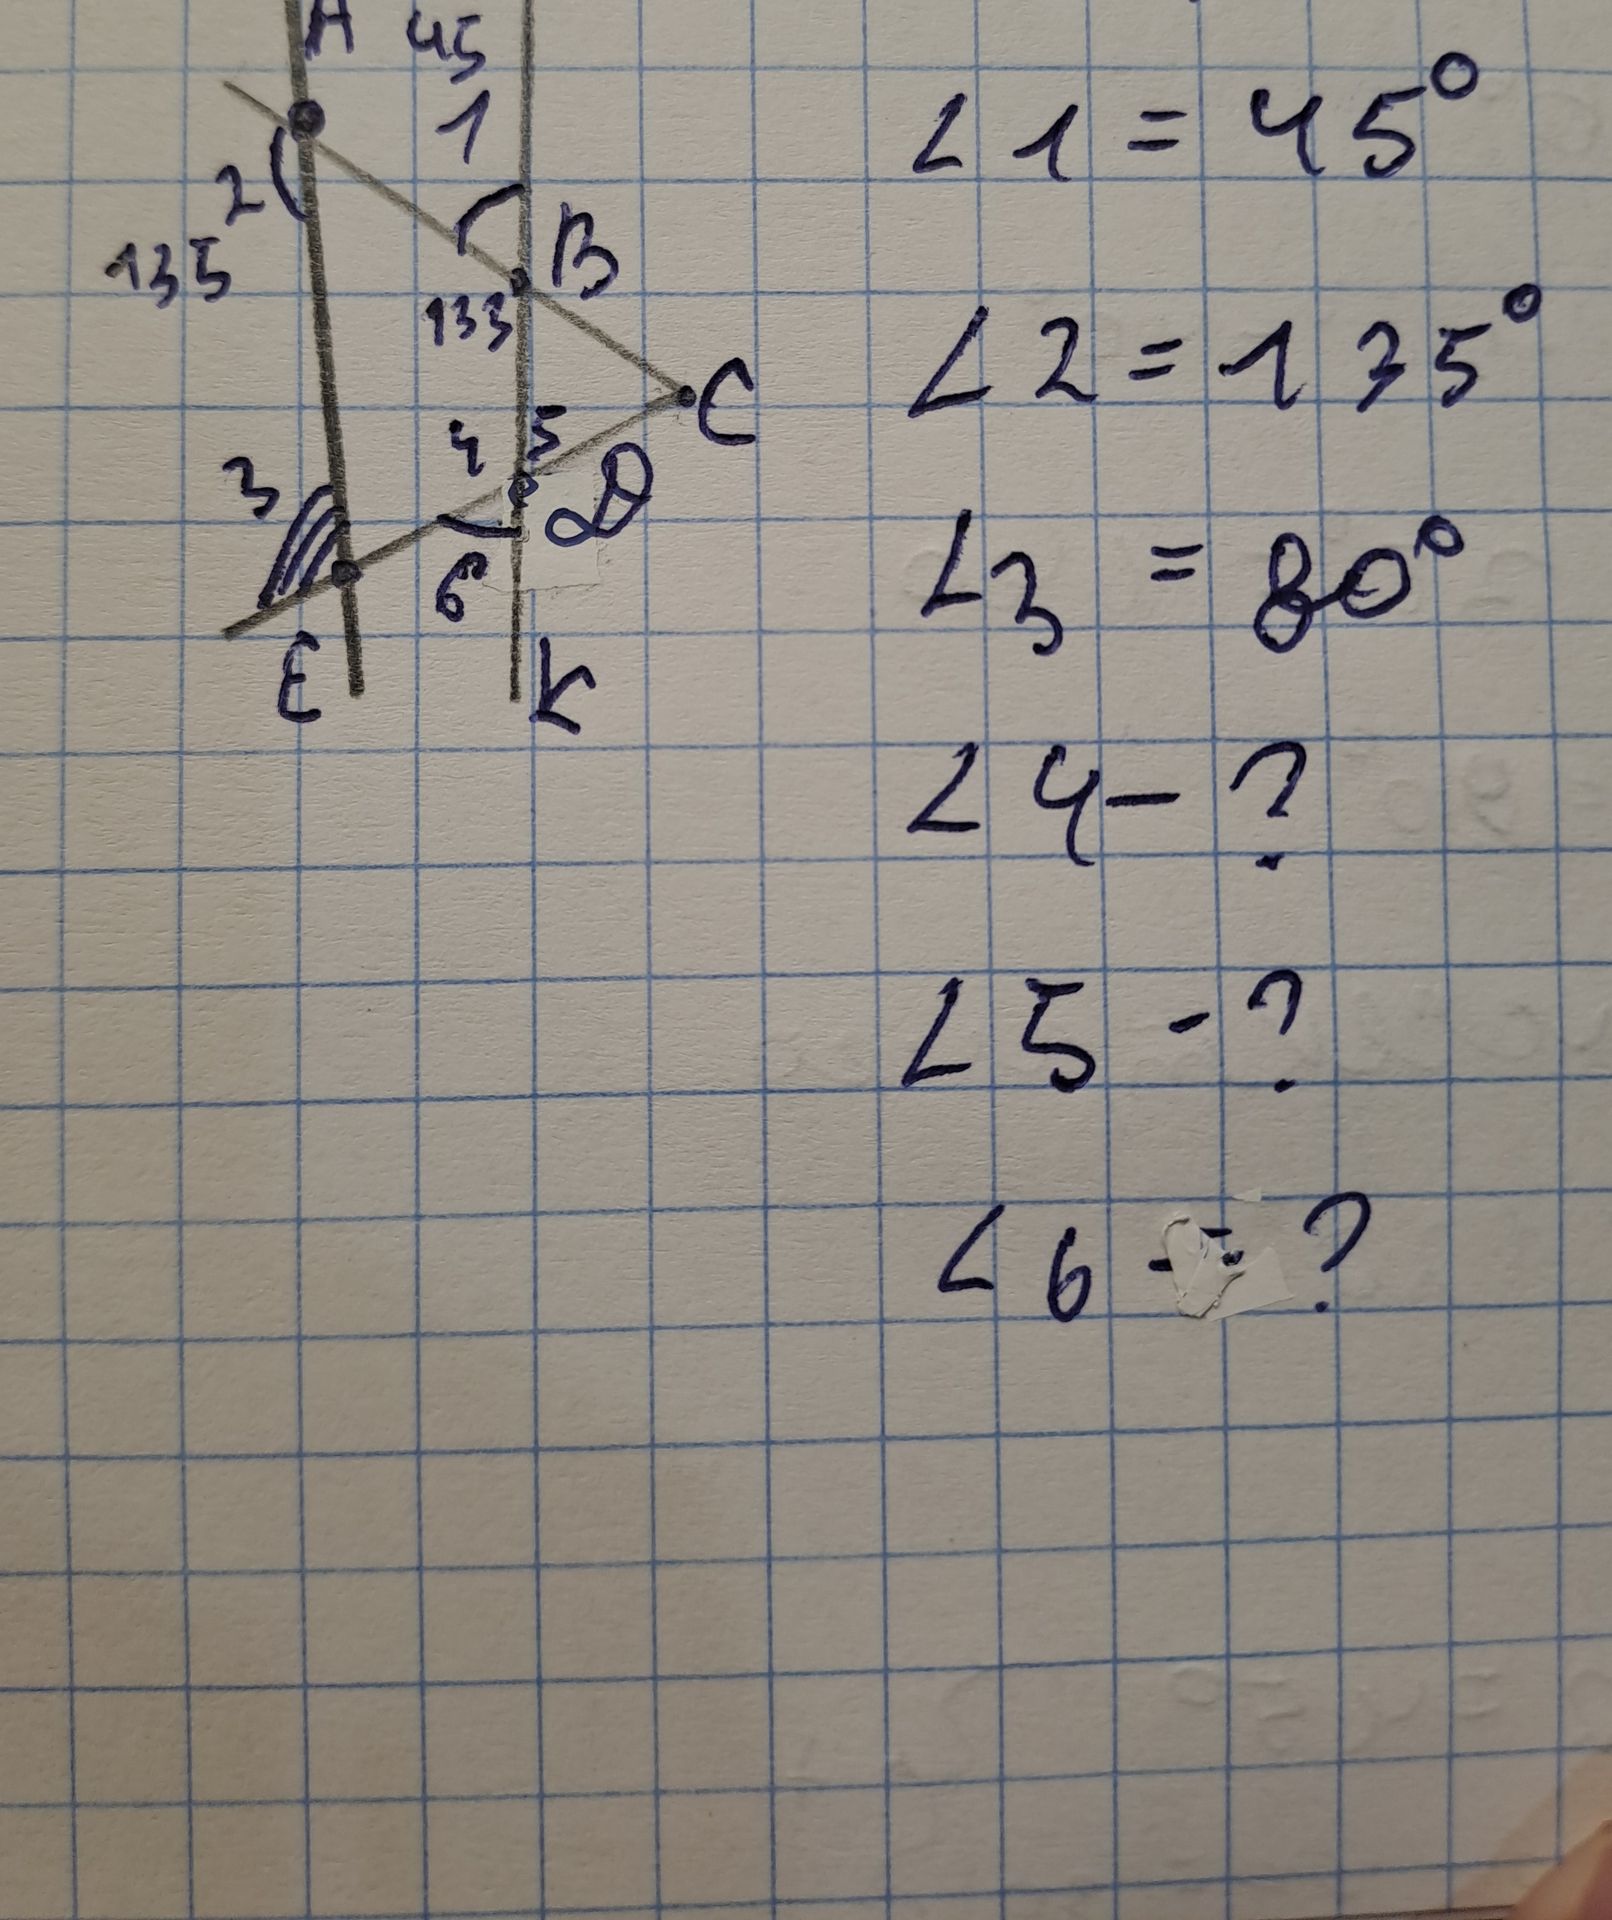 A 45
1
2
135
B
133
C
4 5
3
D
6
E
K
∠1 = 45°
∠2 = 135°
∠3 = 80°
∠4 - ?
∠5 - ?
∠6 - ?